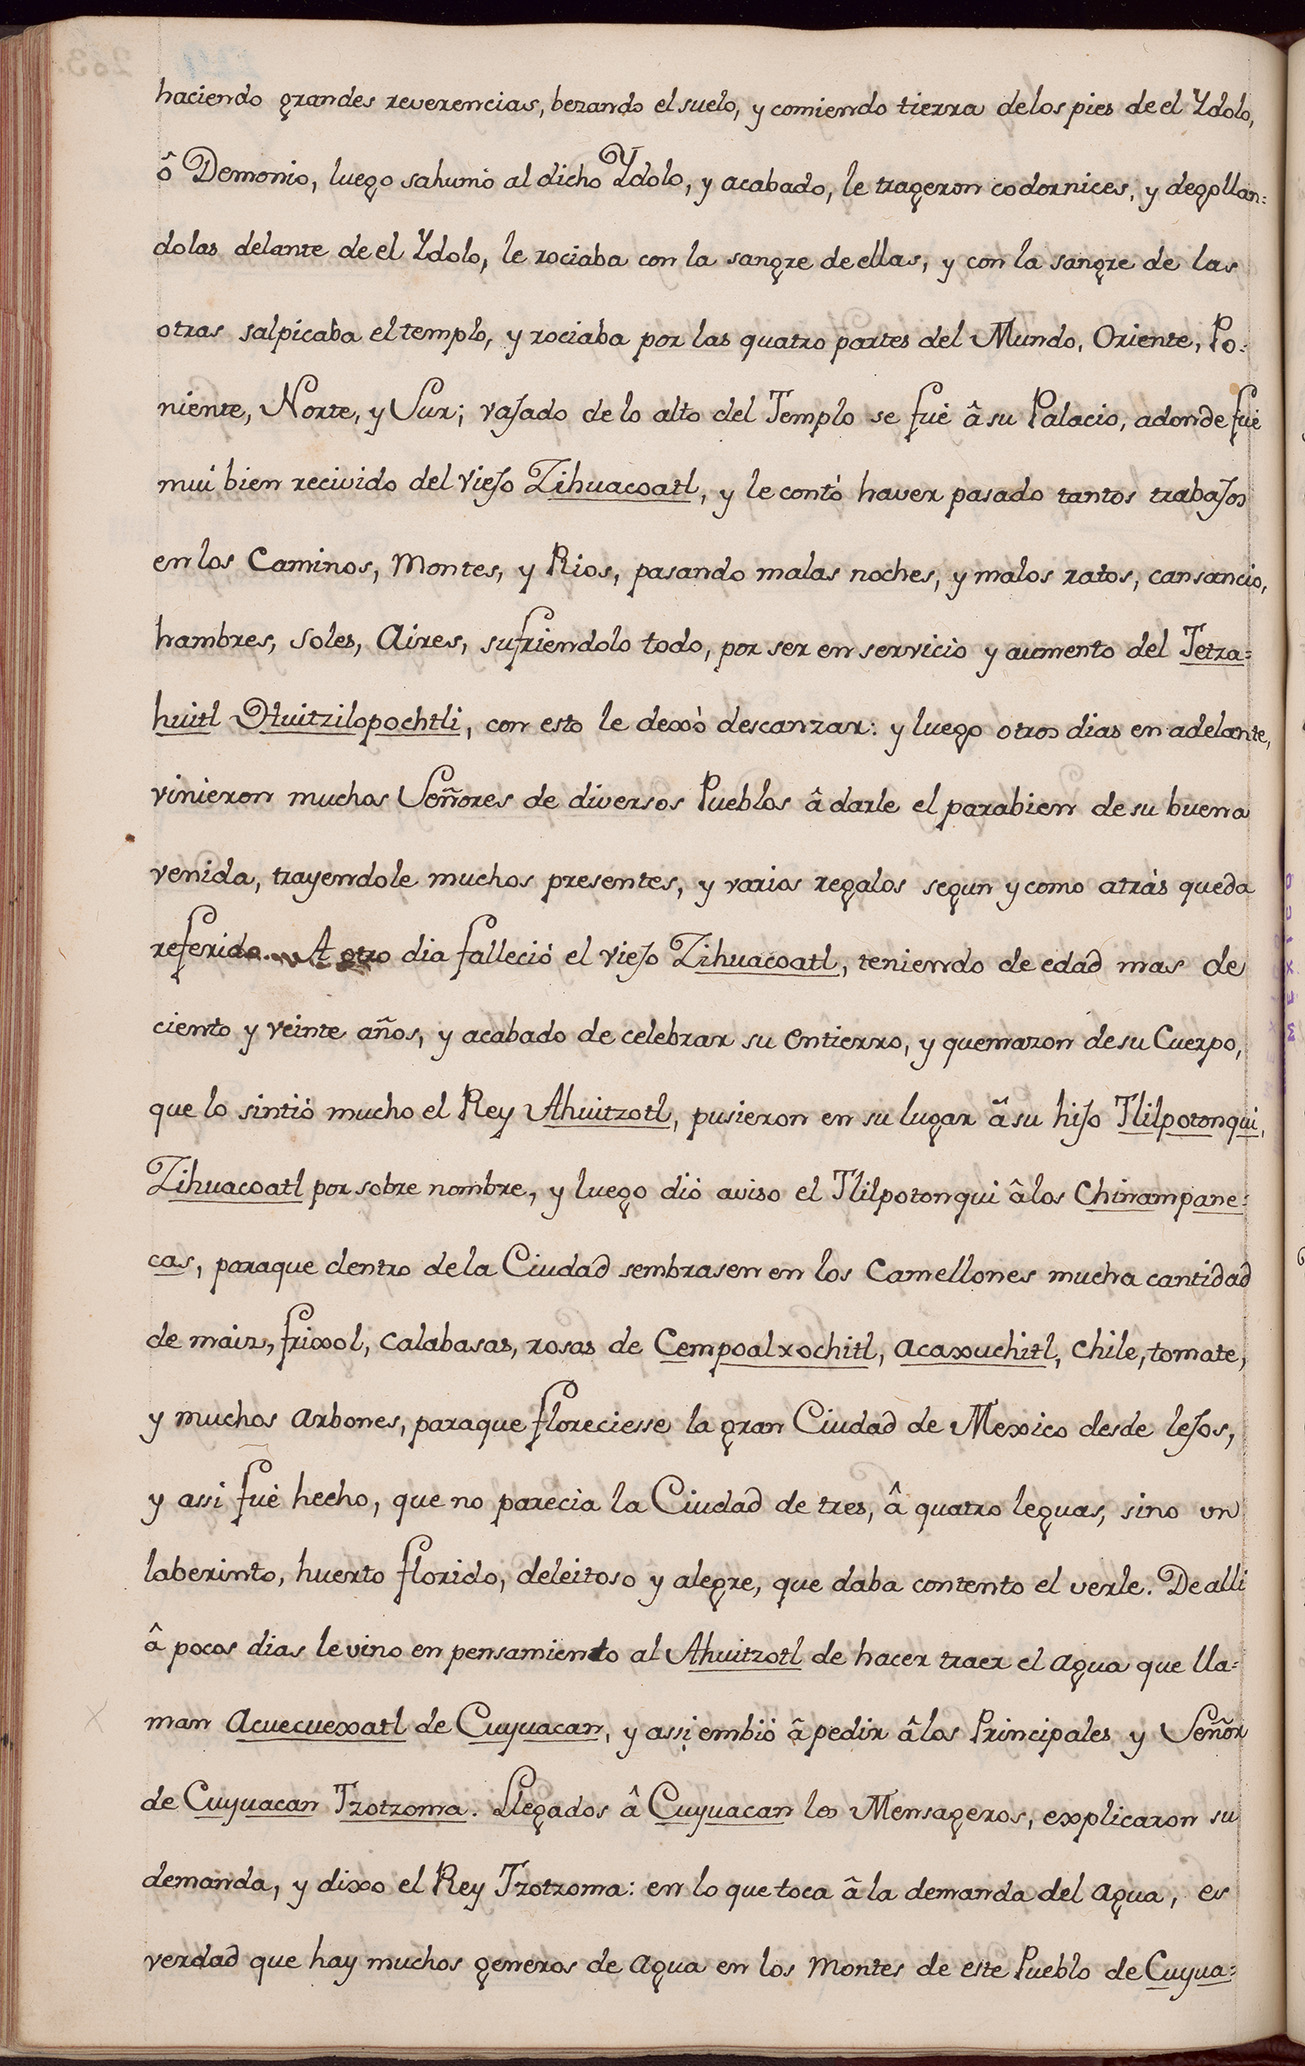 haciendo grandes reverencias, bezando el suelo, y comiendo tierra de los pies de el Ydolo,
ô Demonio, luego sahumò al dicho Ydolo, y acabado, le trageron codornices, y degollan=
dolas delante de el Ydolo, le rociaba con la sangre de ellas, y con la sangre de las
otras salpicaba el templo, y rociaba por las quatro partes del Mundo, Oriente, Po=
niente, Norte, y Sur; vajado de lo alto del Templo se fuè â su Palacio, adonde fuè
mui bien recivido del viejo Zihuacoatl, y le contò haver pasado tantos trabajos
en los Caminos, Montes, y Rios, pasando malas noches, y malos ratos, cansancio,
hambres, Soles, Aires, sufriendolo todo, por ser en servicio y aumento del Tetza=
huitl Huitzilopochtli, con esto le dexò descanzar: y luego otros dias en adelante,
vinieron muchos Señores de diversos Pueblos â darle el parabien de su buena
venida, trayendole muchos presentes, y varios regalos segun y como atràs queda
referido. A otro dia falleciò el viejo Zihuacoatl, teniendo de edad mas de
ciento y veinte años, y acabado de celebrar su entierro, y quemazon de su Cuerpo,
que lo sintiò mucho el Rey Ahuitzotl, pusieron en su lugar â su hijo Tlilpotonqui,
Zihuacoatl por sobre nombre, y luego diò aviso el Tlilpotonqui âlos Chinampane=
cas, paraque dentro de la Ciudad sembrasen en los Camellones mucha cantidad
de maiz, frixol, calabasas, rosas de Cempoalxochitl, acaxuchitl, chile, tomate,
y muchos arbones, paraque floreciesse la gran Ciudad de Mexico desde lejos,
y assi fuè hecho, que no parecia la Ciudad de tres, â quatro leguas, sino un
laberinto, huerto florido, deleitoso y alegre, que daba contento el verle. De alli
â pocos dias le vino en pensamiento al Ahuitzotl de hacer traer el agua que lla=
man Acuecuexatl de Cuyuacan, y assi embiò â pedir âlos Principales y Señor
de Cuyuacan Tzotzoma. Llegados â Cuyuacan los Mensageros, explicaron su
demanda, y dixo el Rey Tzotzoma: en lo que toca â la demanda del agua, es
verdad que hay muchos generos de agua en los montes de este Pueblo de Cuyua=